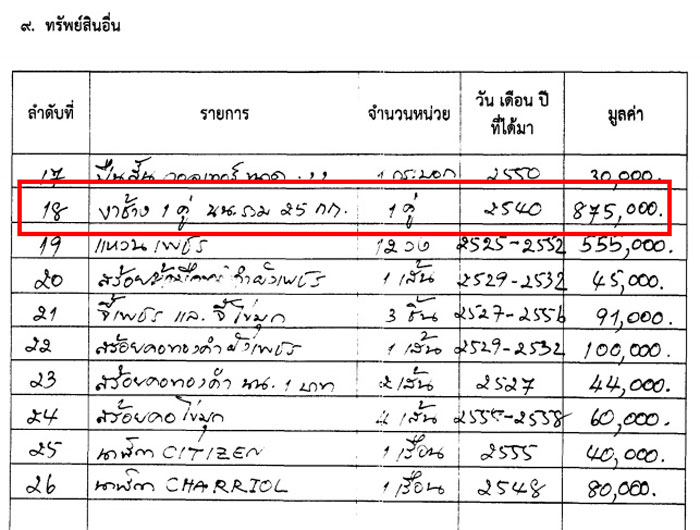 ๙. ทรัพย์สินอื่น
ลำดับที่ รายการ จำนวนหน่วย วัน เดือน ปี ที่ได้มา มูลค่า
17 ปืนสั้น วอลเทอร์ ขนาด .22 1 กระบอก 2550 30,000.
18 งาช้าง 1 คู่ นน.รวม 25 กก. 1 คู่ 2540 875,000.
19 แหวนเพชร 12 วง 2525-2552 555,000.
20 สร้อย ฝังเพชร 1 เส้น 2529-2532 45,000.
21 จี้เพชร และ จี้ไข่มุก 3 ชิ้น 2527-2556 91,000.
22 สร้อยคอทองคำฝังเพชร 1 เส้น 2529-2532 100,000.
23 สร้อยคอทองคำ นน. 1 บาท 2 เส้น 2527 44,000.
24 สร้อยคอไข่มุก 4 เส้น 60,000.
25 นาฬิกา CITIZEN 1 เรือน 2555 40,000.
26 นาฬิกา CHARRIOL 1 เรือน 2548 80,000.